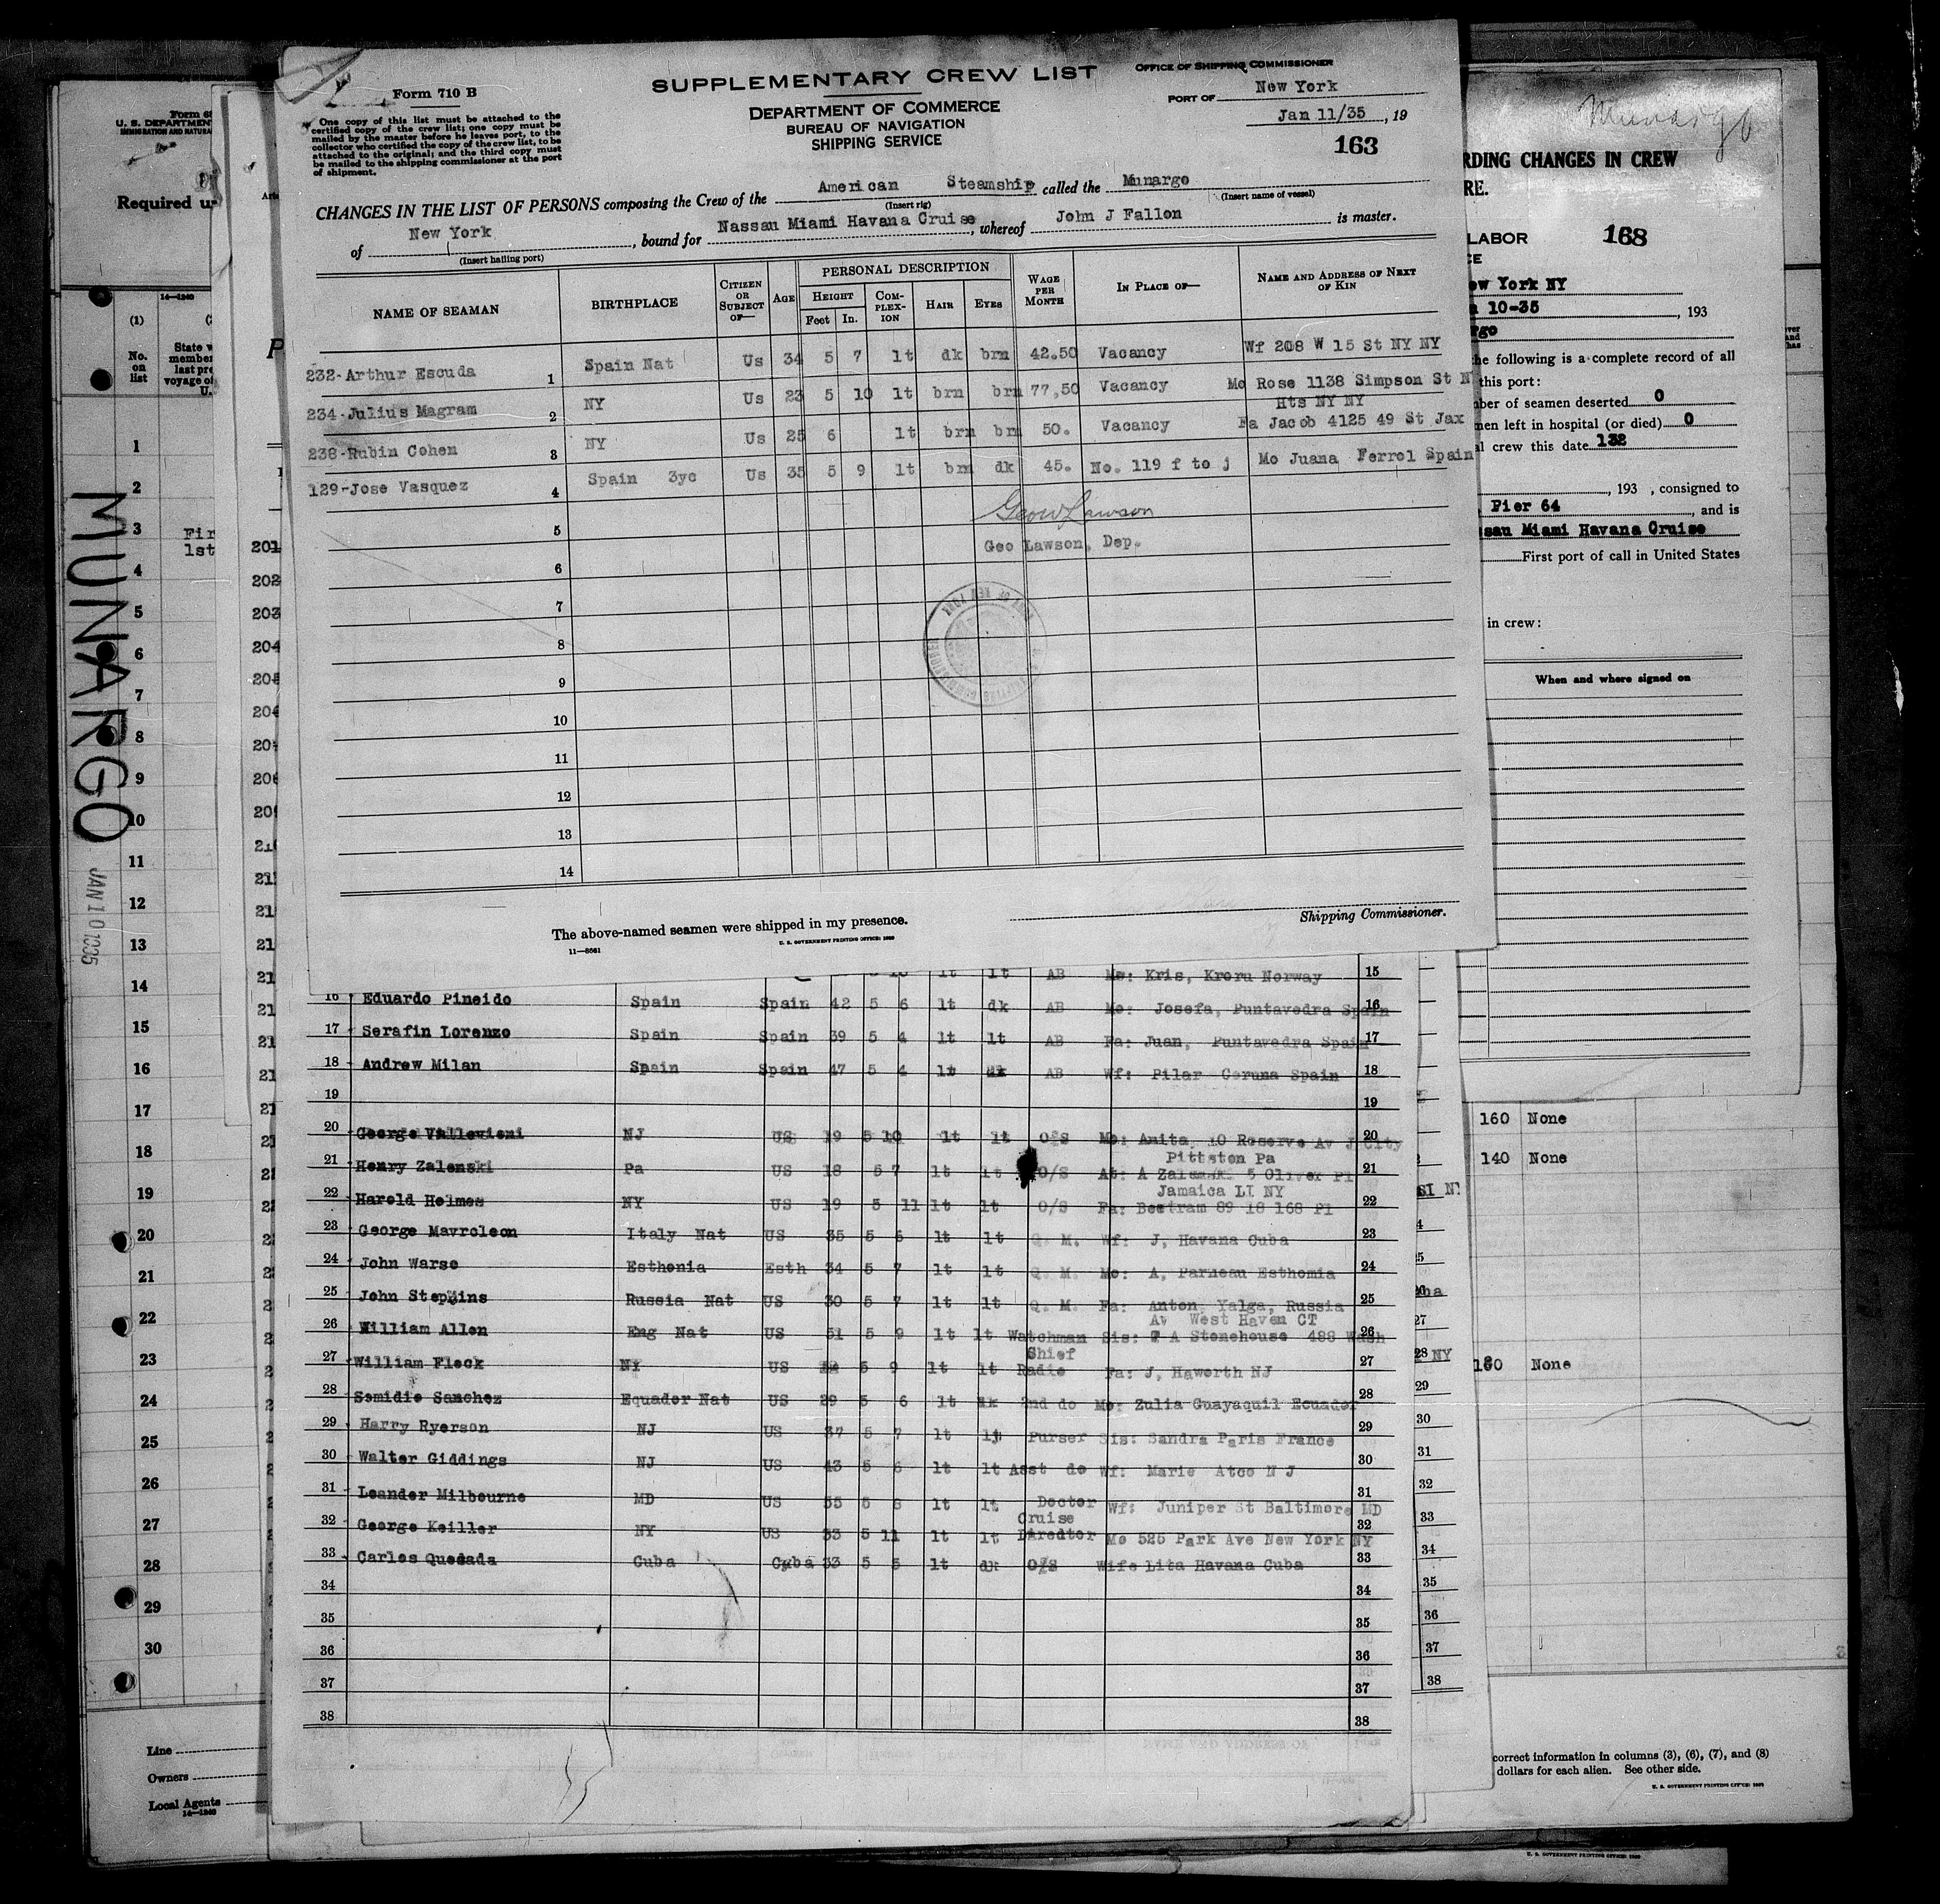 Form 710 B
One copy of this list must be attached to the
certified copy of the crew list; one copy must be
mailed by the master before he leaves port, to the
collector who certified the copy of the crew list, to be
attached to the original; and the third copy must
be mailed to the shipping commissioner at the port
of shipment.
SUPPLEMENTARY CREW LIST
DEPARTMENT OF COMMERCE
BUREAU OF NAVIGATION
SHIPPING SERVICE
OFFICE OF SHIPPING COMMISSIONER
PORT OF New York
Jan 11/35, 19
163
CHANGES IN THE LIST OF PERSONS composing the Crew of the American Steamship called the Munargo
(Insert rig) (Insert name of vessel)
of New York, bound for Nassau Miami Havana Cruise, whereof John J Fallon is master.
(Insert hailing port)
NAME OF SEAMAN BIRTHPLACE CITIZEN OR SUBJECT OF— AGE PERSONAL DESCRIPTION HEIGHT Feet In. COMPLEXION HAIR EYES WAGE PER MONTH IN PLACE OF— NAME AND ADDRESS OF NEXT OF KIN
232-Arthur Escuda 1 Spain Nat Us 34 5 7 lt dk brn 42.50 Vacancy Wf 208 W 15 St NY NY
234-Julius Magram 2 NY Us 23 5 10 lt brn brn 77.50 Vacancy Mo Rose 1138 Simpson St N
Hts NY NY
238-Rubin Cohen 3 NY Us 25 6 lt brn brn 50. Vacancy Fa Jacob 4125 49 St Jax
129-Jose Vasquez 4 Spain 3yc Us 35 5 9 lt brn dk 45. No. 119 f to j Mo Juana Ferrol Spain
Geo W Lawson
5
Geo Lawson, Dep.
6
7
8
9
10
11
12
13
14
The above-named seamen were shipped in my presence.
Shipping Commissioner.
11—8561
U. S. GOVERNMENT PRINTING OFFICE
lt lt AB Mo: Kris, Kroru Norway 15
16 Eduardo Pineido Spain Spain 42 5 6 lt dk AB Mo: Josefa, Puntavedra Spain 16
17 Serafin Lorenzo Spain Spain 39 5 4 lt lt AB Fa: Juan, Puntavedra Spain 17
18 Andrew Milan Spain Spain 47 5 4 lt dk AB Wf: Pilar Coruna Spain 18
19 19
20 George NJ US 19 5 10 lt lt O/S Mo: Anita, 10 Reserve Av J City 20
Pittston Pa
21 Henry Zalenski Pa US 18 5 7 lt lt O/S At: A 5 Oliver Pl 21
Jamaica LI NY
22 Harold Holmes NY US 19 5 11 lt lt O/S Fa: Bertram 89 18 168 Pl 22
23 George Mavroleon Italy Nat US 35 5 6 lt lt Q. M. Wf: J, Havana Cuba 23
24 John Warse Esthonia Esth 34 5 7 lt lt Q. M. Mo: A, Parneau Esthomia 24
25 John Stepkins Russia Nat US 30 5 7 lt lt Q. M. Fa: Anton, Yalga, Russia 25
Av West Haven CT
26 William Allen Eng Nat US 51 5 9 lt lt Watchman Sis: A Stonehouse 488 Wash 26
Chief
27 William Fleck NY US 5 9 lt lt Radio Fa: J, Haworth NJ 27
28 Somidio Sanchez Equador Nat US 29 5 6 lt dk 2nd do Mo: Zulia Guayaquil Ecuador 28
29 Harry Ryerson NJ US 37 5 7 lt lt Purser Sis: Sandra Paris France 29
30 Walter Giddings NJ US 43 5 6 lt lt Asst do Wf: Marie Atco N J 30
31 Leander Milbourne MD US 55 5 8 lt lt Doctor Wf: Juniper St Baltimore MD 31
Cruise
32 George Keiller NY US 33 5 11 lt lt Director Mo 525 Park Ave New York NY 32
33 Carlos Quesada Cuba Cuba 33 5 5 lt dk O/S Wife Lita Havana Cuba 33
34 34
35 35
36 36
37 37
38 38
U. S. DEPARTMENT
IMMIGRATION AND NATURA
Required u
14—1240
(1)
No.
on
list
State w
member
last pre
voyage of
U.
1
2
3 Fir
1st
4
5
6
7
8
9
10
11
12
13
14
15
16
17
18
19
20
21
22
23
24
25
26
27
28
29
30
Line
Owners
Local Agents
14—1240
MUNARGO
JAN 10 1935
201
202
203
204
Munargo
RDING CHANGES IN CREW
RE.
LABOR 168
CE
ew York NY
10-35, 193
rgo
he following is a complete record of all
this port:
ber of seamen deserted 0
men left in hospital (or died) 0
l crew this date 132
, 193 , consigned to
Pier 64, and is
sau Miami Havana Cruise
First port of call in United States
in crew:
When and where signed on
160 None
140 None
None
27
28 NY
29
30
31
32
33
34
35
36
37
38
correct information in columns (3), (6), (7), and (8)
dollars for each alien. See other side.
U. S. GOVERNMENT PRINTING OFFICE